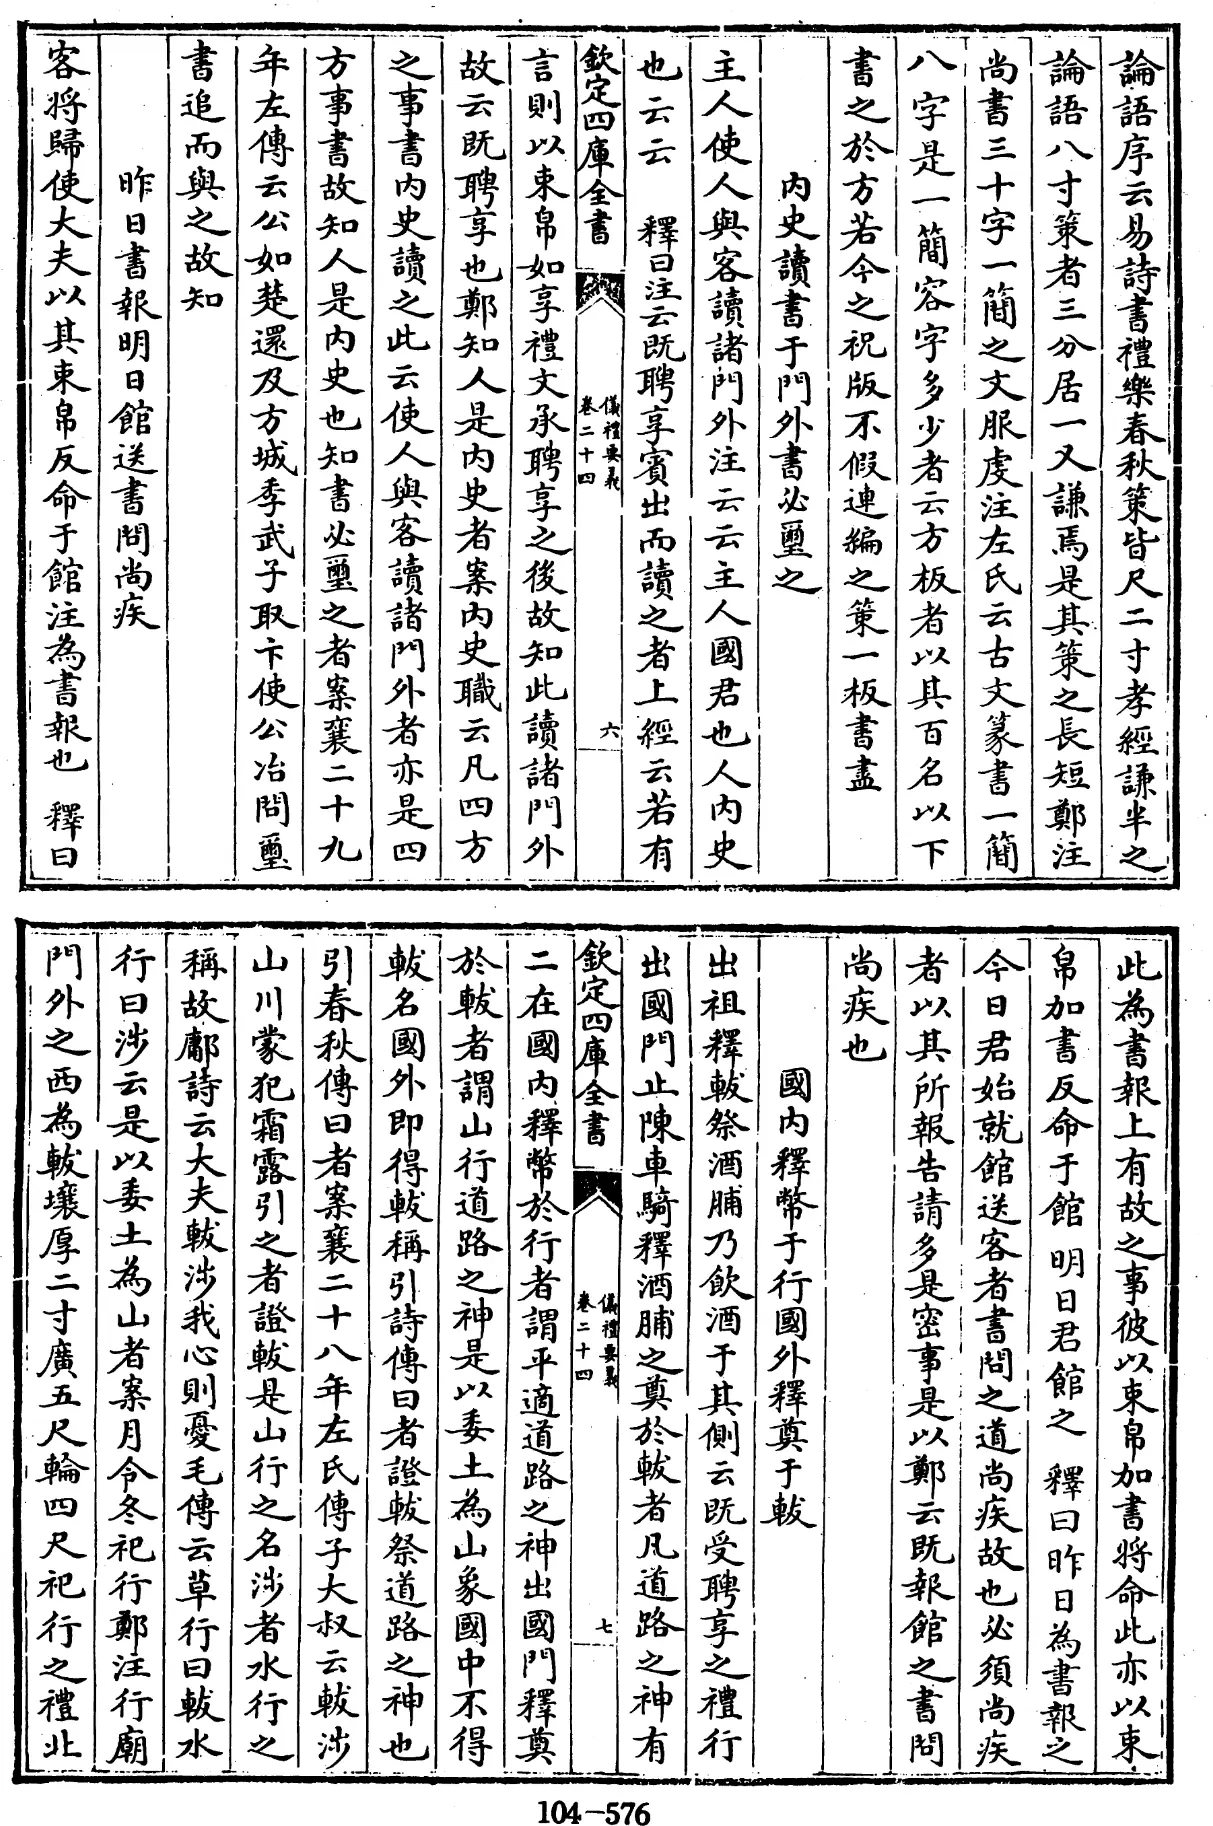 論語序云易詩書禮樂春秋策皆尺二寸孝經謙半之
論語八寸策者三分居一又謙焉是其策之長短鄭注
尚書三十字一簡之文服虔注左氏云古文篆書一簡
八字是一簡容字多少者云方板者以其百名以下
書之於方若今之祝版不假連編之策一板書盡
內史讀書于門外書必璽之
主人使人與客讀諸門外注云云主人國君也人內史
也云云 釋曰注云既聘享賓出而讀之者上經云若有
欽定四庫全書
儀禮要義
卷二十四
六
言則以束帛如享禮文承聘享之後故知此讀諸門外
故云既聘享也鄭知人是內史者案內史職云凡四方
之事書內史讀之此云使人與客讀諸門外者亦是四
方事書故知人是內史也知書必璽之者案襄二十九
年左傳云公如楚還及方城季武子取卞使公冶問璽
書追而與之故知
昨日書報明日館送書問尚疾
客將歸使大夫以其束帛反命于館注為書報也 釋曰
此為書報上有故之事彼以束帛加書將命此亦以束
帛加書反命于館 明日君館之 釋曰昨日為書報之
今日君始就館送客者書問之道尚疾故也必須尚疾
者以其所報告請多是密事是以鄭云既報館之書問
尚疾也
國內釋幣于行國外釋奠于軷
出祖釋軷祭酒脯乃飲酒于其側云既受聘享之禮行
出國門止陳車騎釋酒脯之奠於軷者凡道路之神有
欽定四庫全書
儀禮要義
卷二十四
七
二在國內釋幣於行者謂平適道路之神出國門釋奠
於軷者謂山行道路之神是以委土為山象國中不得
軷名國外即得軷稱引詩傳曰者證軷祭道路之神也
引春秋傳曰者案襄二十八年左氏傳子大叔云軷涉
山川蒙犯霜露引之者證軷是山行之名涉者水行之
稱故鄘詩云大夫軷涉我心則憂毛傳云草行曰軷水
行曰涉云是以委土為山者案月令冬祀行鄭注行廟
門外之西為軷壤厚二寸廣五尺輪四尺祀行之禮北
104-576